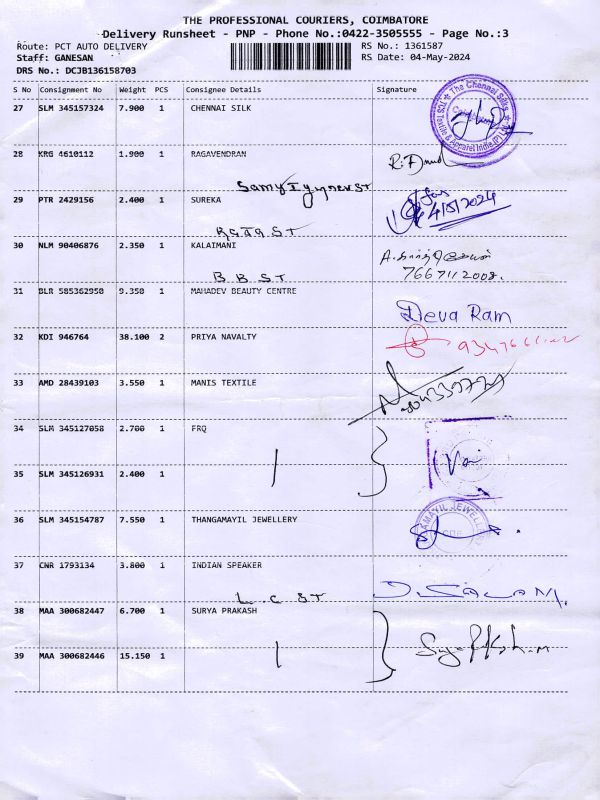 THE PROFESSIONAL COURIERS, COIMBATORE
Delivery Runsheet - PNP - Phone No.:0422-3505555 - Page No.:3
Route: PCT AUTO DELIVERY
RS No.: 1361587
Staff: GANESAN
RS Date: 04-May-2024
DRS No.: DCJB136158703
S No Consignment No Weight PCS Consignee Details Signature
27 SLM 345157324 7.900 1 CHENNAI SILK
The Chennai Silks
28 KRG 4610112 1.900 1 RAGAVENDRAN
29 PTR 2429156 2.400 1 SUREKA 4/5/2024
30 NLM 90406876 2.350 1 KALAIMANI
7667112008.
B B ST
31 BLR 585362950 9.350 1 MAHADEV BEAUTY CENTRE Deva Ram
32 KDI 946764 38.100 2 PRIYA NAVALTY
33 AMD 28439103 3.550 1 MANIS TEXTILE
34 SLM 345127058 2.700 1 FRQ
35 SLM 345126931 2.400 1
36 SLM 345154787 7.550 1 THANGAMAYIL JEWELLERY
37 CNR 1793134 3.800 1 INDIAN SPEAKER
L.C ST
38 MAA 300682447 6.700 1 SURYA PRAKASH
39 MAA 300682446 15.150 1